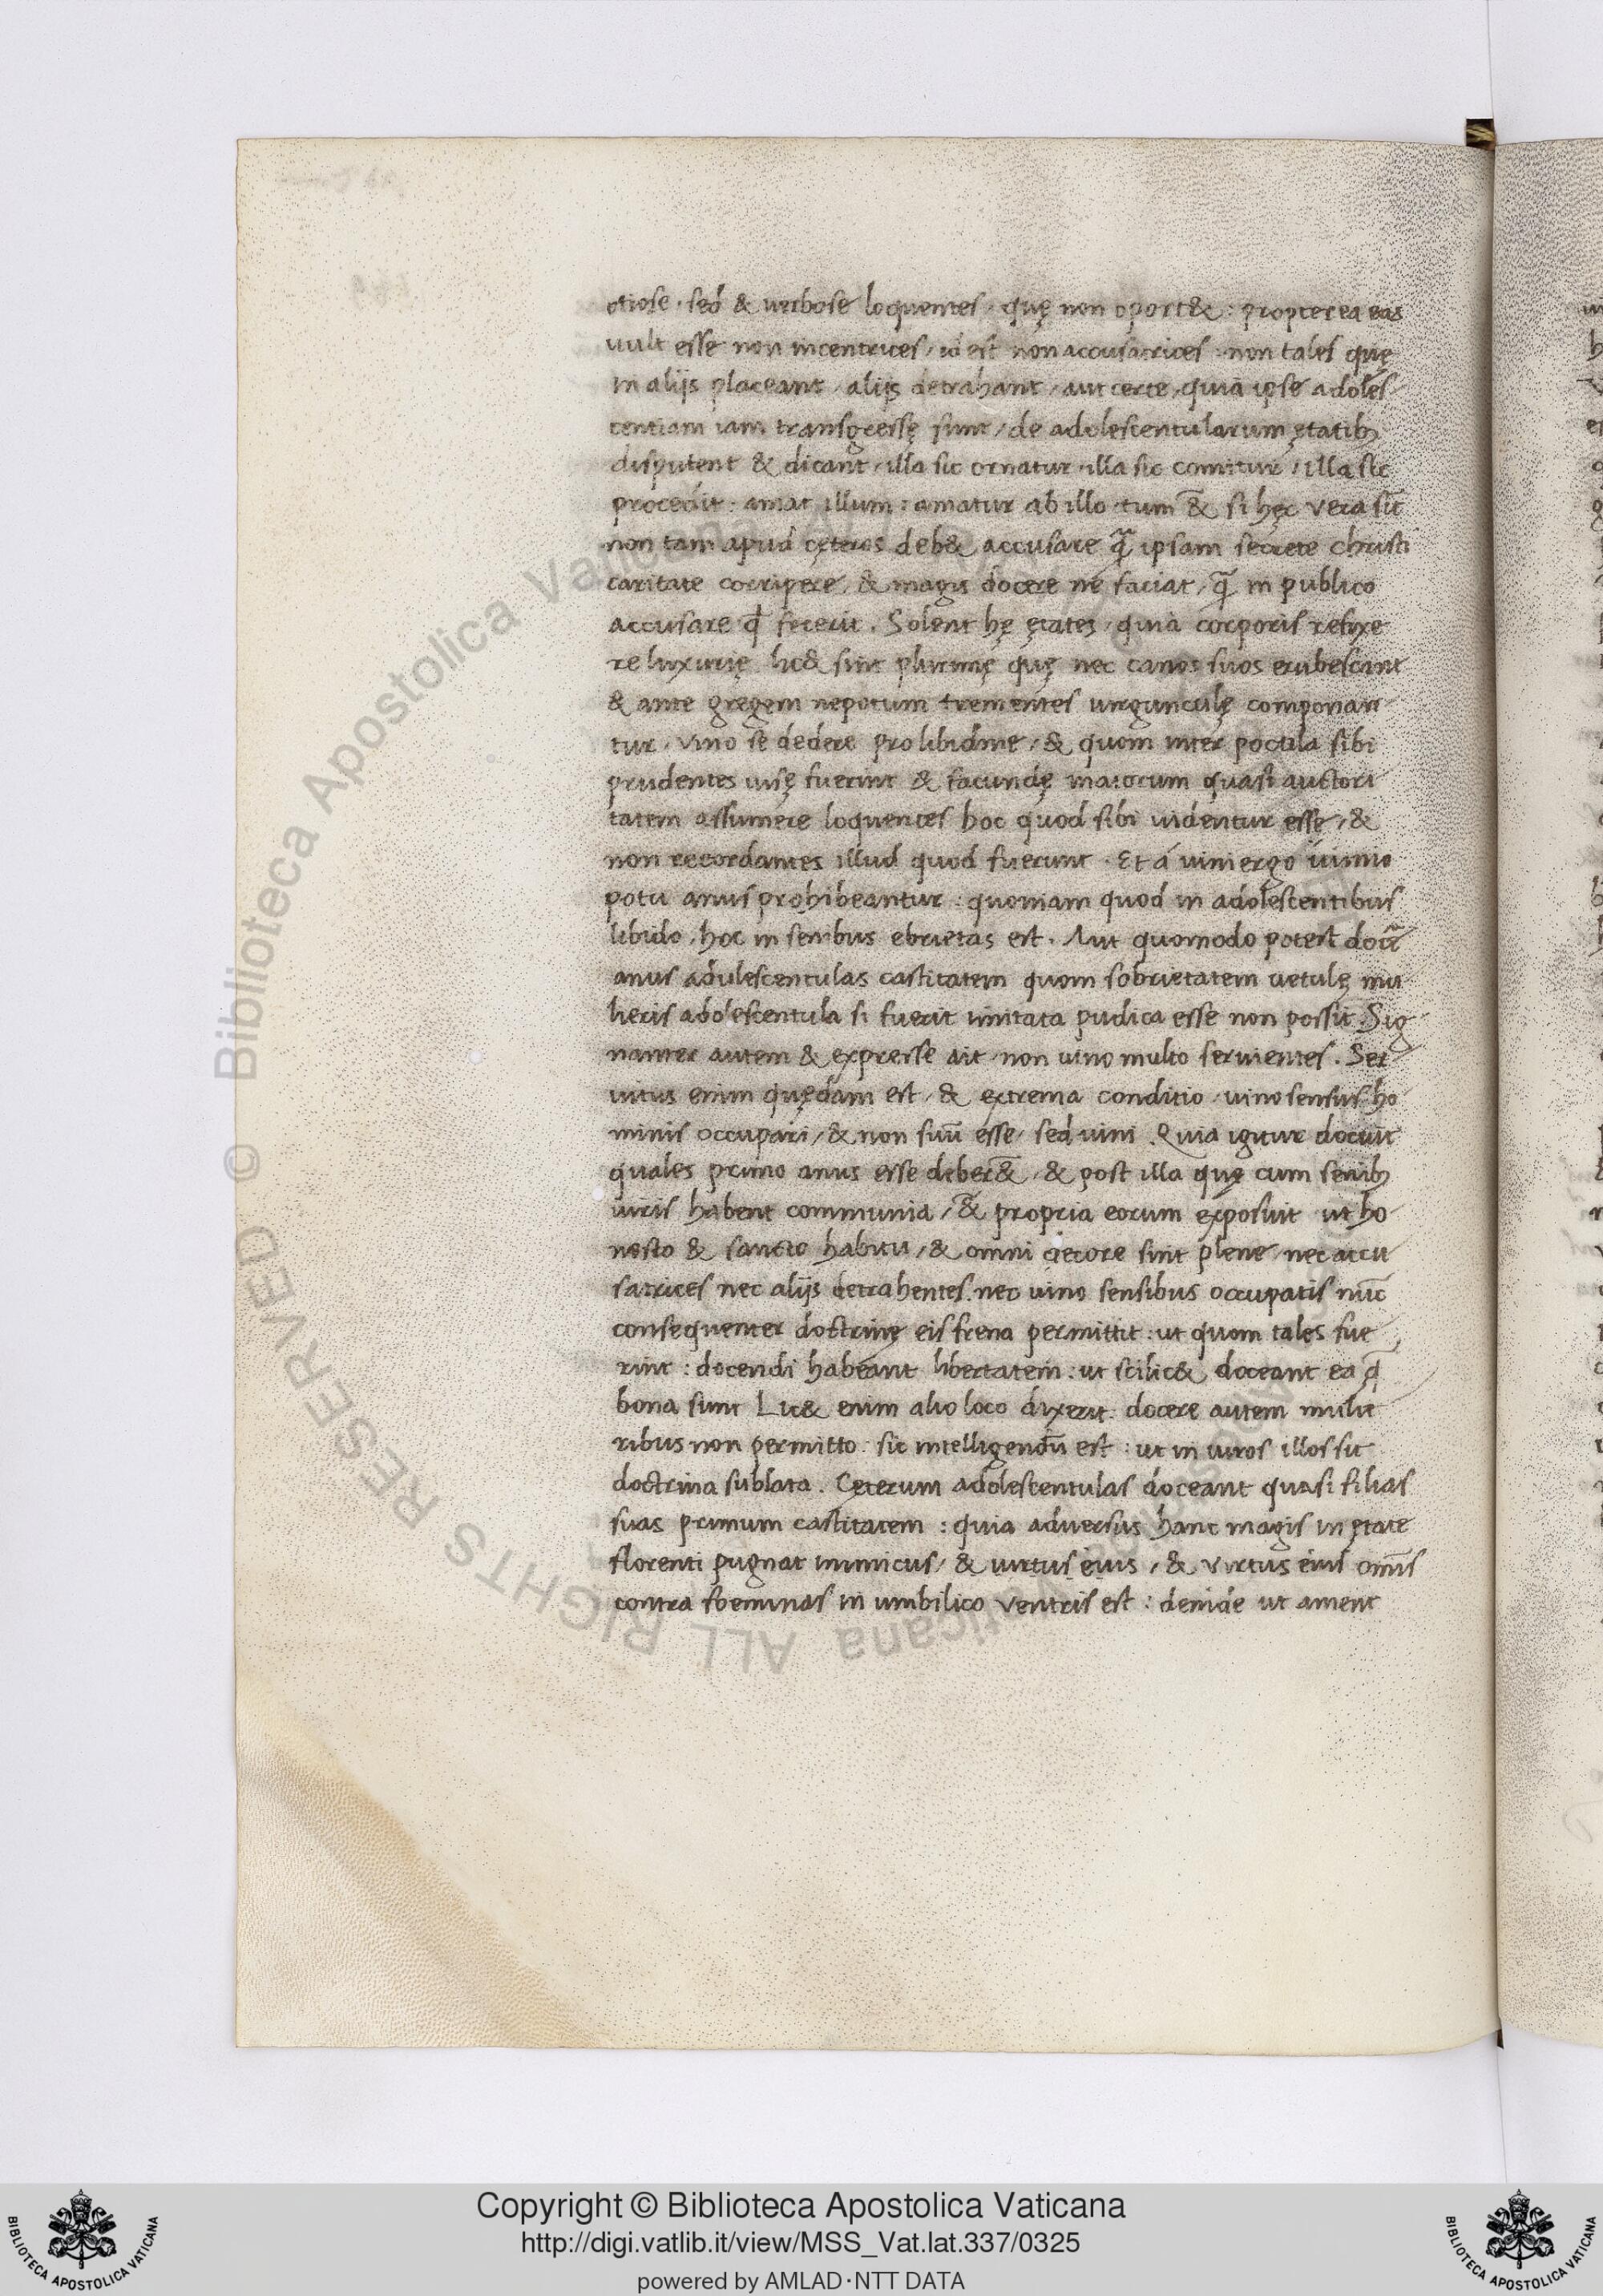 otiose · sed & uerbose loquentes / quę non oport& : propterea eas
uult esse non incentrices / id est non accusatrices : non tales quę
in alijs placeant / alijs detrahant / aut certe / quia ipse adoles
centiam iam transgressę sunt / de adolescentularum ętatib;
disputent & dicant / illa sic ornatur · illa sic comitur / illa sic
procedit : amat illum : amatur ab illo · tum &̄ si hęc vera sīt
non tam apud cęteros deb& accusare q̄ ipsam secrete christi
caritate corripere / & magis docere ne faciat / q̄ in publico
accusare qđ fecerit . Solent hę ętates / quia corporis refixe
re luxurię lic& sint plurimę quę nec canos suos erubescant
& ante gregem nepotum trementes uirgunculę componan
tur / vino se dedere pro libidine / & quom inter pocula sibi
prudentes uisę fuerint & facundę maiorum quasi auctori
tatem assumere loquentes hoc quod sibi uidentur esse / &
non recordantes illud quod fuerunt . Et á uini ergo uimio
potu anus prohibeantur : quoniam quod in adolescentibus
libido / hoc in senibus ebrietas est . Aut quomodo potest doc̄e
anus adulescentulas castitatem quom sobrietatem uetulę mu
lieris adolescentula si fuerit imitata pudica esse non possit . Sig
nanter autem & expresse ait / non uino multo seruientes . Ser
uitus enim quędam est / & extrema conditio / uino sensus ho
minis occupari / & non suū esse / sed uini . Quia igitur docuit
quales primo anus esse deber&̄ / & post illa quę cum senib;
uiris habent communia / &̄ propria eorum exposuit ut ho
nesto & sancto habitu / & omni decore sint plene / nec accu
satrices nec alijs detrahentes . nec uino sensibus occupatis nūc
consequenter doctrinę eis frena permittit : ut quom tales fue
rint : docendi habeant libertatem : ut scilic& doceant ea q̄
bona sunt Lic& enim alio loco dixerit · docere autem mulie
ribus non permitto : sic intelligendū est : ut in uiros illos sit
doctrina sublata . Ceterum adolescentulas doceant quasi filias
suas primum castitatem : quia aduersus hanc magis in ętate
florenti pugnat inimicus / & uirtus eius / & virtus eius om̄is
contra foeminas in umbilico ventris est : deinde ut ament
© Biblioteca Apostolica Vaticana ALL RIGHTS RESERVED
Copyright © Biblioteca Apostolica Vaticana
http://digi.vatlib.it/view/MSS_Vat.lat.337/0325
powered by AMLAD·NTT DATA
BIBLIOTECA APOSTOLICA VATICANA
BIBLIOTECA APOSTOLICA VATICANA